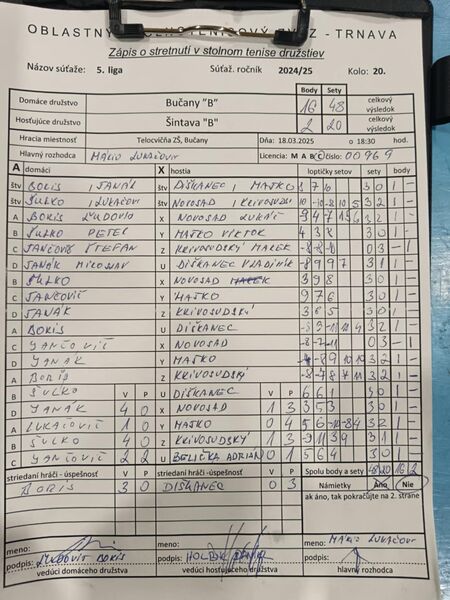 OBLASTNÝ STOLNOTENISOVÝ ZVÄZ - TRNAVA
Zápis o stretnutí v stolnom tenise družstiev
Názov súťaže: 5. liga Súťaž. ročník 2024/25 Kolo: 20.
Body Sety
Domáce družstvo Bučany "B" 16 48 celkový výsledok
Hosťujúce družstvo Šintava "B" 2 20 celkový výsledok
Hracia miestnosť Telocvičňa ZŠ, Bučany Dňa: 18.03.2025 o 18:30 hod.
Hlavný rozhodca MÁRIO LUKAČOVIČ Licencia: M A B C číslo: 00969
A domáci X hostia loptičky setov sety body
štv BORIS, JANÁK DIŠKANEC, MAJKO 3 7 6 3 0 1 -
štv ŠULKO, LUKAČOVIČ NOVOSAD, KRIVOSUDSKÝ 3 2 1 -
A BORIS ĽUDOVÍT X NOVOSAD LUKÁŠ 3 2 1 -
B ŠULKO PETER Y MAJKO VIKTOR 4 3 8 3 0 1 -
C JANČOVIČ ŠTEFAN Z KRIVOSUDSKÝ MAREK -8 -8 -10 0 3 - 1
D JANÁK MIROSLAV U DIŠKANEC VLADIMÍR -8 9 9 7 3 1 1 -
B ŠULKO X NOVOSAD 3 9 8 3 0 1 -
C JANČOVIČ Y MAJKO 9 7 6 3 0 1 -
D JANÁK Z KRIVOSUDSKÝ 3 6 5 3 0 1 -
A BORIS U DIŠKANEC 3 2 1 -
C JANČOVIČ X NOVOSAD -8 -7 -11 0 3 - 1
D JANÁK Y MAJKO 3 2 1 -
A BORIS Z KRIVOSUDSKÝ 3 2 1 -
B ŠULKO V P U DIŠKANEC V P 6 6 1 3 0 1 -
D JANÁK 4 0 X NOVOSAD 1 3 3 5 3 3 0 1 -
A LUKAČOVIČ 1 0 Y MAJKO 0 4 5 6 -10 -8 4 3 2 1 -
B ŠULKO 4 0 Z KRIVOSUDSKÝ 1 3 3 1 1 -
C JANČOVIČ 2 2 U BELIČKA ADRIAN 0 1 5 6 4 3 0 1 -
striedaní hráči - úspešnosť V P striedaní hráči - úspešnosť V P Spolu body a sety 48 20 16 2
BORIS 3 0 DIŠKANEC 0 3 Námietky Áno Nie
ak áno, tak pokračujte na 2. strane
meno: meno: meno: MÁRIO LUKAČOVIČ
podpis: ĽUDOVÍT BORIS podpis: podpis:
vedúci domáceho družstva vedúci hosťujúceho družstva hlavný rozhodca